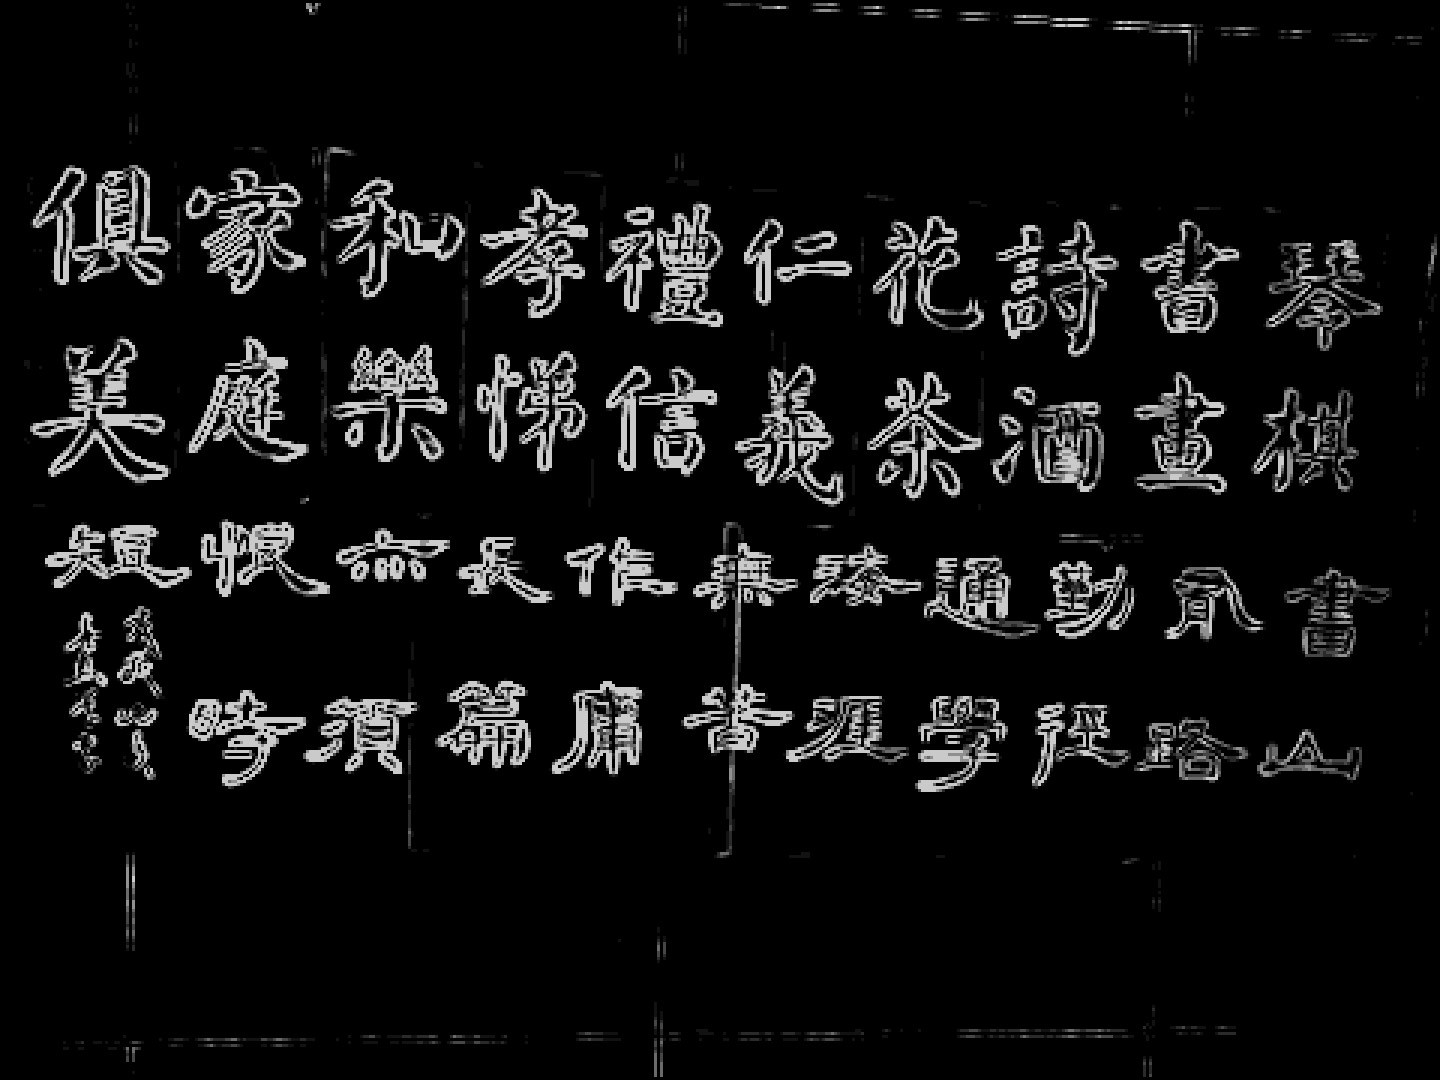 琴棋
書畫
詩酒
花茶
仁義
禮信
孝悌
和樂
家庭
俱美
書山
有路
勤徑
通學
海涯
無苦
作庸
長篇
亦須
恨時
短